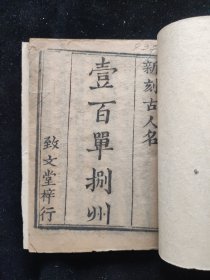 新刻古人名
壹百單捌州
致文堂梓行